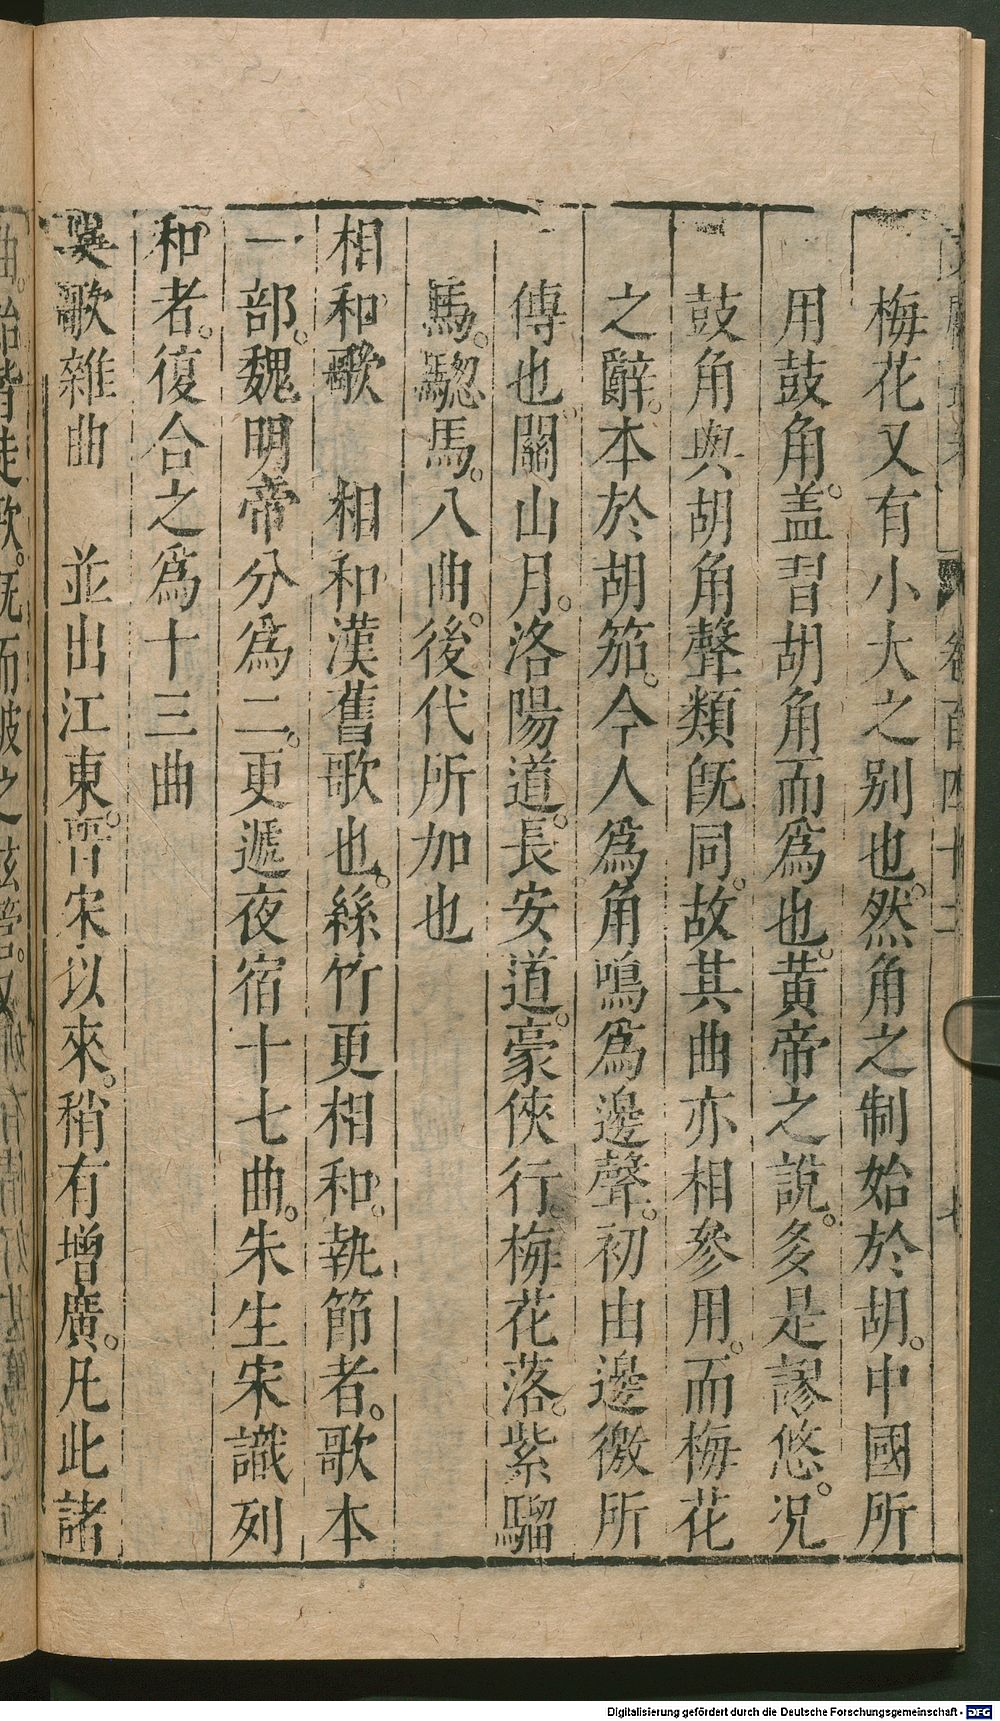 梅花又有小大之別也。然角之制始於胡。中國所
用鼓角。盖習胡角而爲也。黃帝之說。多是謬悠。况
鼓角與胡角聲類旣同。故其曲亦相參用。而梅花
之辭。本於胡笳。今人爲角鳴爲邊聲。初由邊徼所
傳也。關山月。洛陽道。長安道。豪俠行。梅花落。紫騮
馬。驄馬。八曲。後代所加也
相和歌 相和漢舊歌也。絲竹更相和。執節者。歌本
一部。魏明帝分爲二。更遞夜宿十七曲。朱生宋識列
和者。復合之爲十三曲
吳歌雜曲 並出江東。晉宋以來。稍有增廣。凡此諸
Digitalisierung gefördert durch die Deutsche Forschungsgemeinschaft - DFG